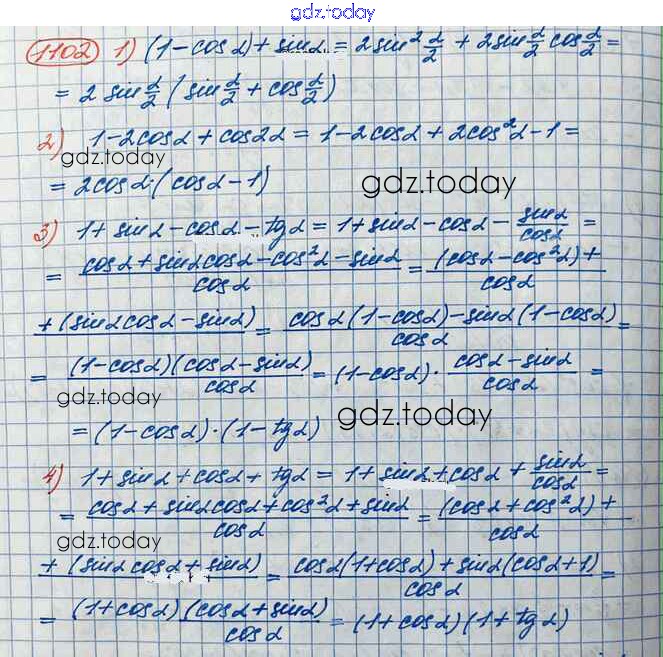 gdz.today
1102 1) (1-cosα)+sinα = 2sin²α/2 + 2sinα/2 cosα/2 =
= 2 sinα/2 (sinα/2 + cosα/2)
2) 1-2cosα+cos2α = 1-2cosα+2cos²α-1 =
gdz.today
= 2cosα·(cosα-1)
gdz.today
3) 1+sinα-cosα-tgα = 1+sinα-cosα- sinα/cosα =
= (cosα+sinαcosα-cos²α-sinα)/cosα = (cosα-cos²α)+ /cosα
+(sinαcosα-sinα) = (cosα(1-cosα)-sinα(1-cosα))/cosα =
= (1-cosα)(cosα-sinα)/cosα = (1-cosα)· (cosα-sinα)/cosα =
gdz.today
gdz.today
= (1-cosα)·(1-tgα)
4) 1+sinα+cosα+tgα = 1+sinα+cosα+ sinα/cosα =
= (cosα+sinαcosα+cos²α+sinα)/cosα = (cosα+cos²α)+ /cosα
gdz.today
+(sinαcosα+sinα) = (cosα(1+cosα)+sinα(cosα+1))/cosα =
= (1+cosα)(cosα+sinα)/cosα = (1+cosα)(1+tgα)